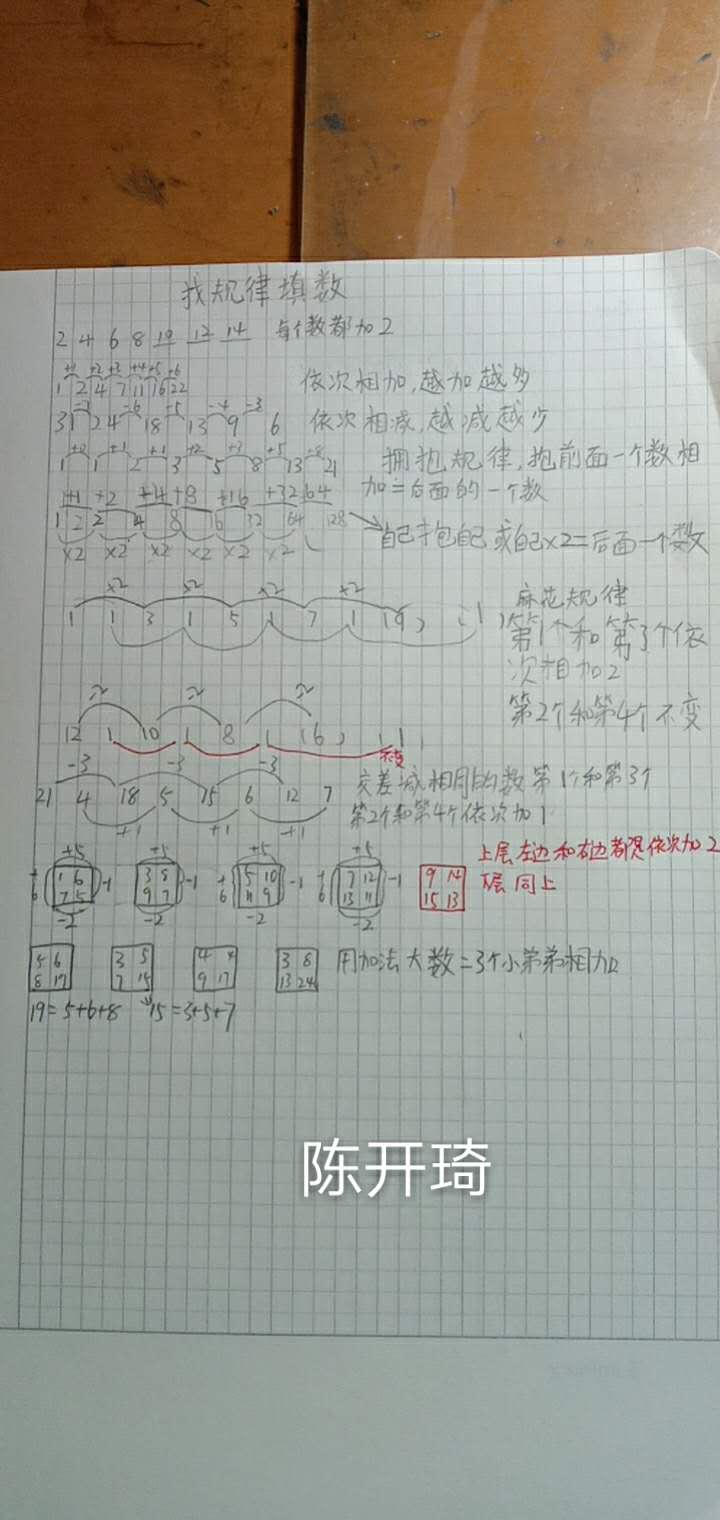 找规律填数
2 4 6 8 10 12 14 每个数都加2
+1 +2 +3 +4 +5 +6
1 2 4 7 11 16 22 依次相加,越加越多
-7 -6 -5 -4 -3
31 24 18 13 9 6 依次相减,越减越少
+0 +1 +1 +2 +3 +5 +8
1 1 2 3 5 8 13 21 拥抱规律,抱前面一个数相
加=后面的一个数
+1 +2 +4 +8 +16 +32 64
1 2 2 4 8 6 32 64 128 自己抱自己或自己×2=后面一个数
×2 ×2 ×2 ×2 ×2 ×2
×2 ×2 ×2 ×2 麻花规律
1 1 3 1 5 1 7 1 (9), 1 第1个和第3个依
次相加2
第2个和第4个不变
12 1 10 1 8 1 (6), 1
不变
-3 -3 -3
21 4 18 5 15 6 12 7 交差减相同的数第1个和第3个
+1 +1 +1 第2个和第4个依次加1
+5 +5 +5 +5 上层左边和右边都是依次加2
1 6 3 8 5 10 7 12 9 14 下层同上
7 5 9 7 11 9 13 11 15 13
+6 -1 -1 +6 -1 +6 -1
-2 -2 -2 -2
5 6 3 5 4 4 3 8 用加法大数=3个小弟弟相加
8 19 7 15 9 17 13 24
19=5+6+8 15=3+5+7
陈开琦